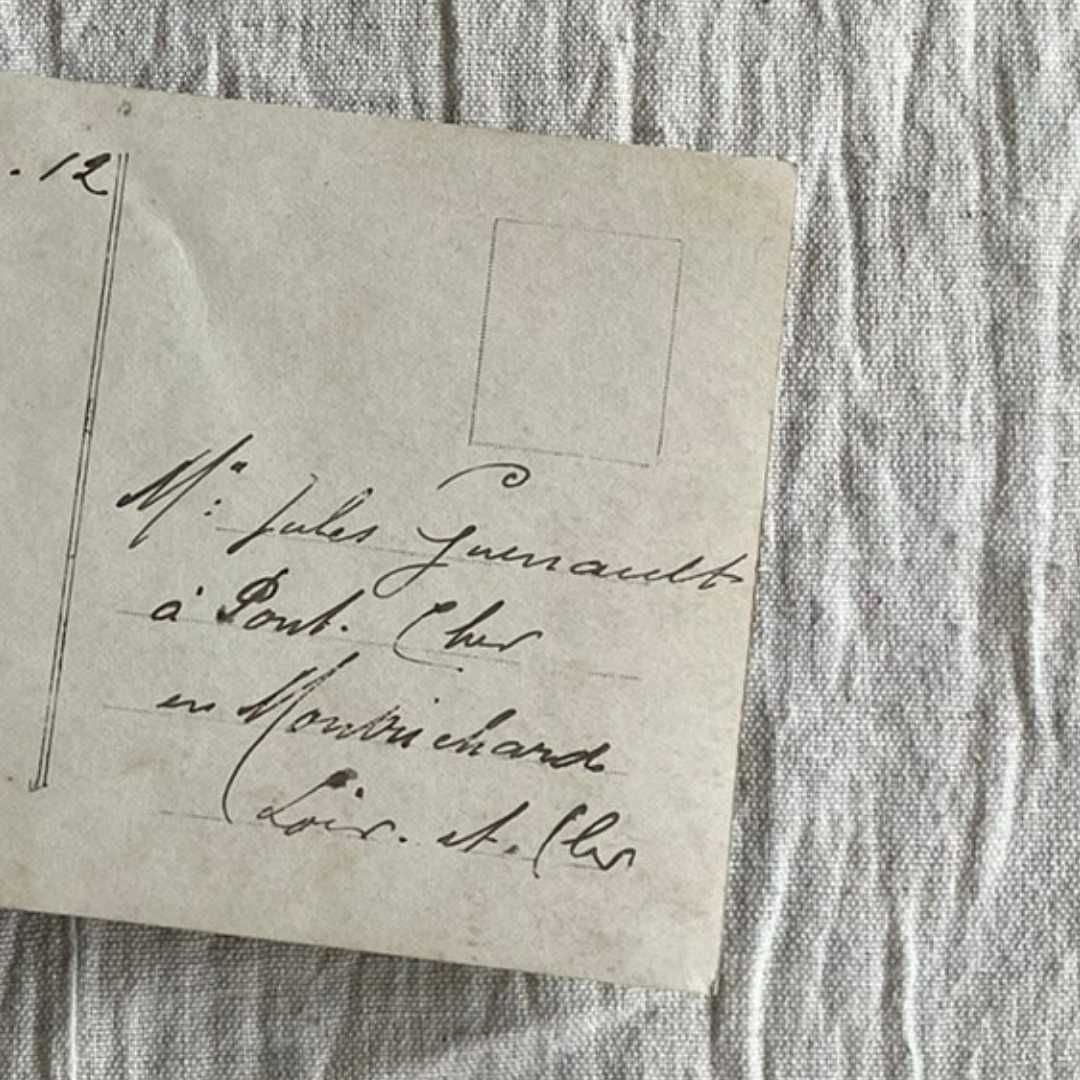 . 12
Mr: Jules Guenault
à Pont. Cher
en Montrichard
Loir. et. Cher